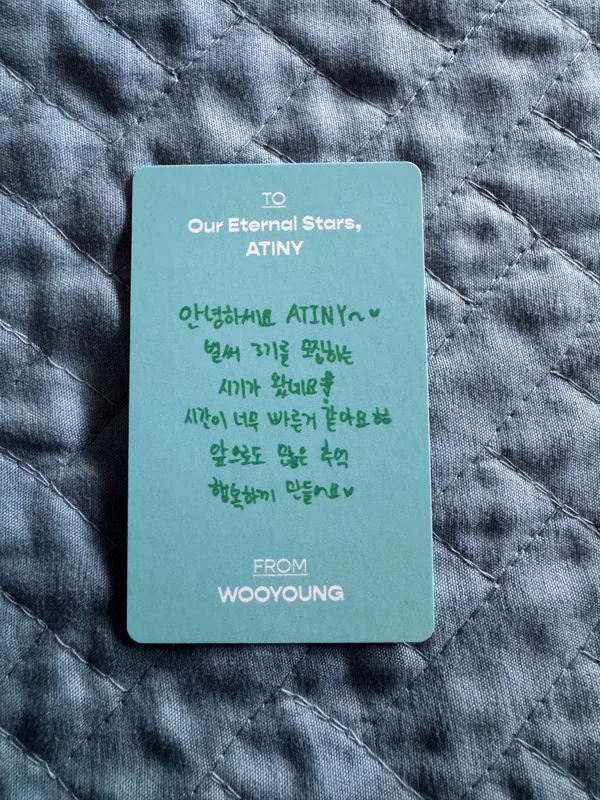 TO
Our Eternal Stars,
ATINY
안녕하세요 ATINY~♥
벌써 3기를 모집하는
시기가 왔네요!
시간이 너무 빠른거 같아요ㅎㅎ
앞으로도 많은 추억
행복하게 만들어요♥
FROM
WOOYOUNG